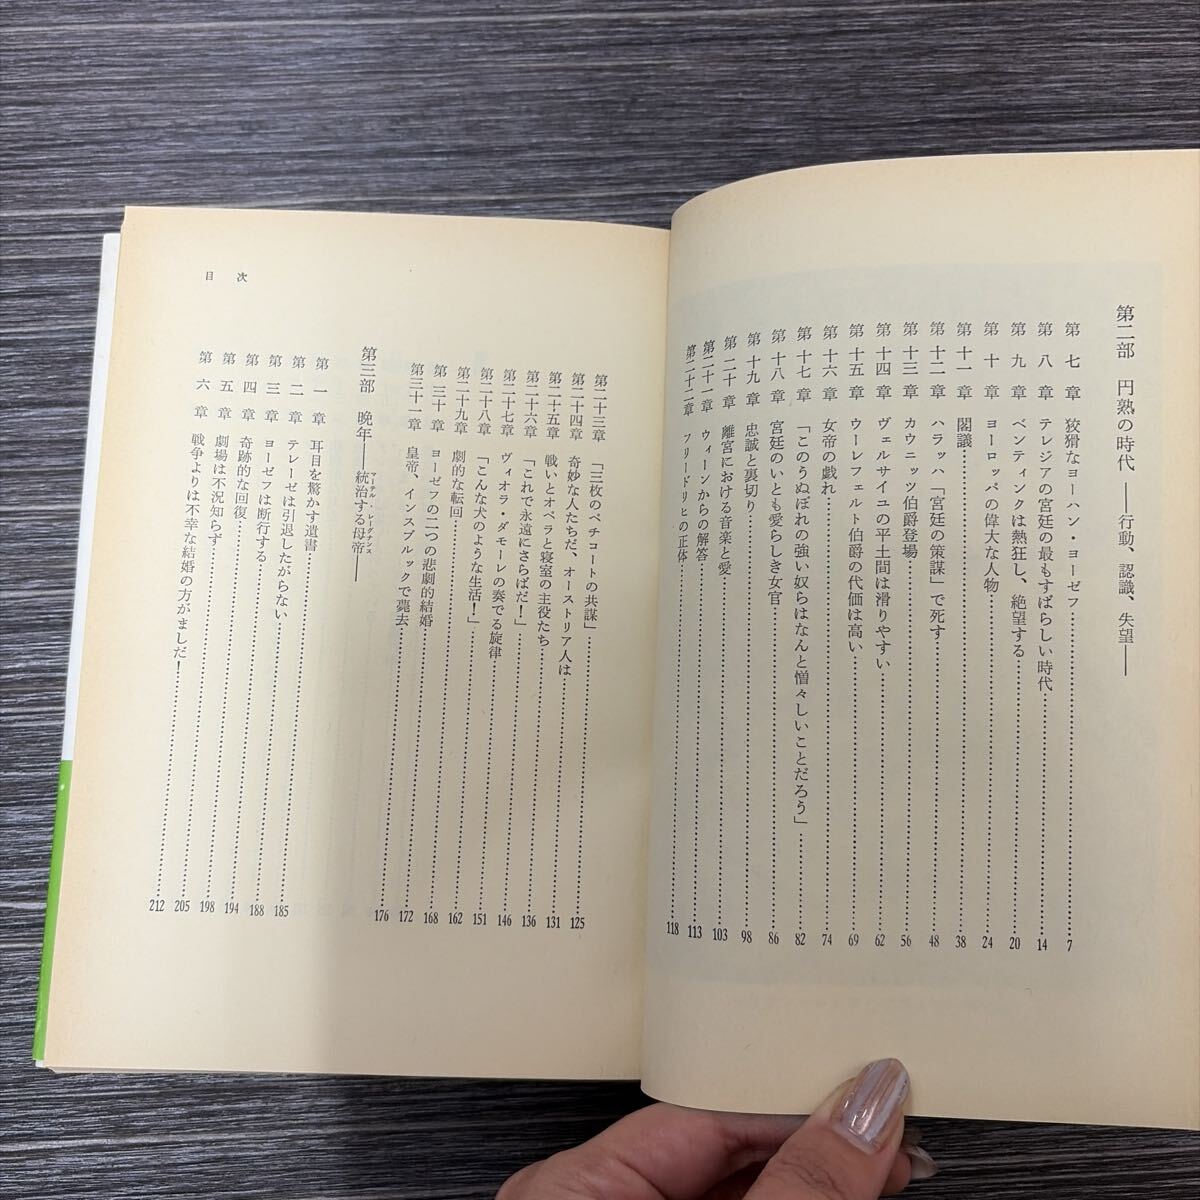 第二部 円熟の時代 ――行動、認識、失望――
第七章 狡猾なヨーハン・ヨーゼフ 7
第八章 テレジアの宮廷の最もすばらしい時代 14
第九章 ベンティンクは熱狂し、絶望する 20
第十章 ヨーロッパの偉大な人物 24
第十一章 閣議 38
第十二章 ハラッハ「宮廷の策謀」で死す 48
第十三章 カウニッツ伯爵登場 56
第十四章 ヴェルサイユの平土間は滑りやすい 62
第十五章 ウーレフェルト伯爵の代価は高い 69
第十六章 女帝の戯れ 74
第十七章 「このうぬぼれの強い奴らはなんと憎々しいことだろう」 82
第十八章 宮廷のいとも愛らしき女官 86
第十九章 忠誠と裏切り 98
第二十章 離宮における音楽と愛 103
第二十一章 ウィーンからの解答 113
第二十二章 フリードリヒの正体 118
目次
第二十三章 「三枚のペチコートの共謀」 125
第二十四章 奇妙な人たちだ、オーストリア人は 131
第二十五章 戦いとオペラと寝室の主役たち 136
第二十六章 「これで永遠にさらばだ!」 146
第二十七章 ヴィオラ・ダモーレの奏でる旋律 151
第二十八章 「こんな犬のような生活!」 162
第二十九章 劇的な転回 168
第三十章 ヨーゼフの二つの悲劇的結婚 172
第三十一章 皇帝、インスブルックで薨去 176
第三部 晩年――統治する母帝――
マーテル・レーグナンス
第一章 耳目を驚かす遺書 185
第二章 テレーゼは引退したがらない 188
第三章 ヨーゼフは断行する 194
第四章 奇跡的な回復 198
第五章 劇場は不況知らず 205
第六章 戦争よりは不幸な結婚の方がましだ! 212